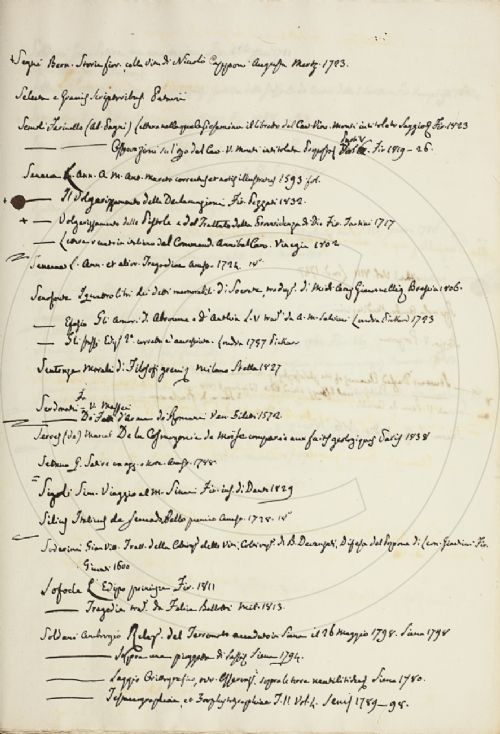 Segni Bern. Storie fior. colla vita di Nicolò Capponi Augusta Mertz. 1723.
Selecta e Graecis Scriptoribus Patavii
Lettera nella quale si esamina il libretto del Cav. Vinc. Monti intitolato Saggio Fir. 1823
Osservazioni sul g° del Cav. V. Monti intitolate Proposta Fir. 1819-26.
Seneca L. Ann. A M. Ant. Mureto correctus et notis illustratus 1593 fol.
Il Volgarizzamento delle Declamazioni Fir. Pezzati 1832.
Volgarizzamento delle Pistole e del Trattato della Provvidenza di Dio Fir. Tartini 1717
Lettere recate in italiano del Command. Annibal Caro. Venezia 1802
Senecae L. Ann. et alior. Tragoediae Amst. 1724. 
Senofonte I quattro libri dei detti memorabili di Socrate, traduz. di Mich. Ang. Giacomelli Brescia 1806.
Efesio Gli Amori d'Abrocome e d'Anthia L. V trad. da A. M. Salvini Londra Pickard 1723
Gli stessi Ediz. 2a corretta e accresciuta. Londra 1757 Pickar
Sentenze Morali di Filosofi greci Milano Stella 1827
Serdonati F.
Serres (de) Marcel De la Cosmogonie de Moïse comparée aux faits géologiques Paris 1838
Settano Q. Satire con agg. e note. Amst. 1788
Sigoli Sim. Viaggio al M. Sinai Fir. ins. di Dante 1829
Silius Italicus de Secundo Bello punico Amst. 1728.
Soderini Gian Vitt. Tratt. della Coltivaz. delle Viti, Coltivaz. di B. Davanzati, Difesa del Popone di Lion. Giacomini Fir.
Giunti 1600
Sofocle L' Edipo principe Fir. 1811
Tragedie trad. da Felice Bellotti Mil. 1813.
Soldani Ambrogio Relaz. del Terremoto accaduto in Siena il 26 Maggio 1798. Siena 1798
Sopra una pioggetta di Sassi Siena 1794.
Saggio Orittografico, ovv. Osservaz. sopra le terre nautilitiche Siena 1780.
Testaceographiae, et Zoophytographiae T. II Vol. 4. Senis 1789-98.